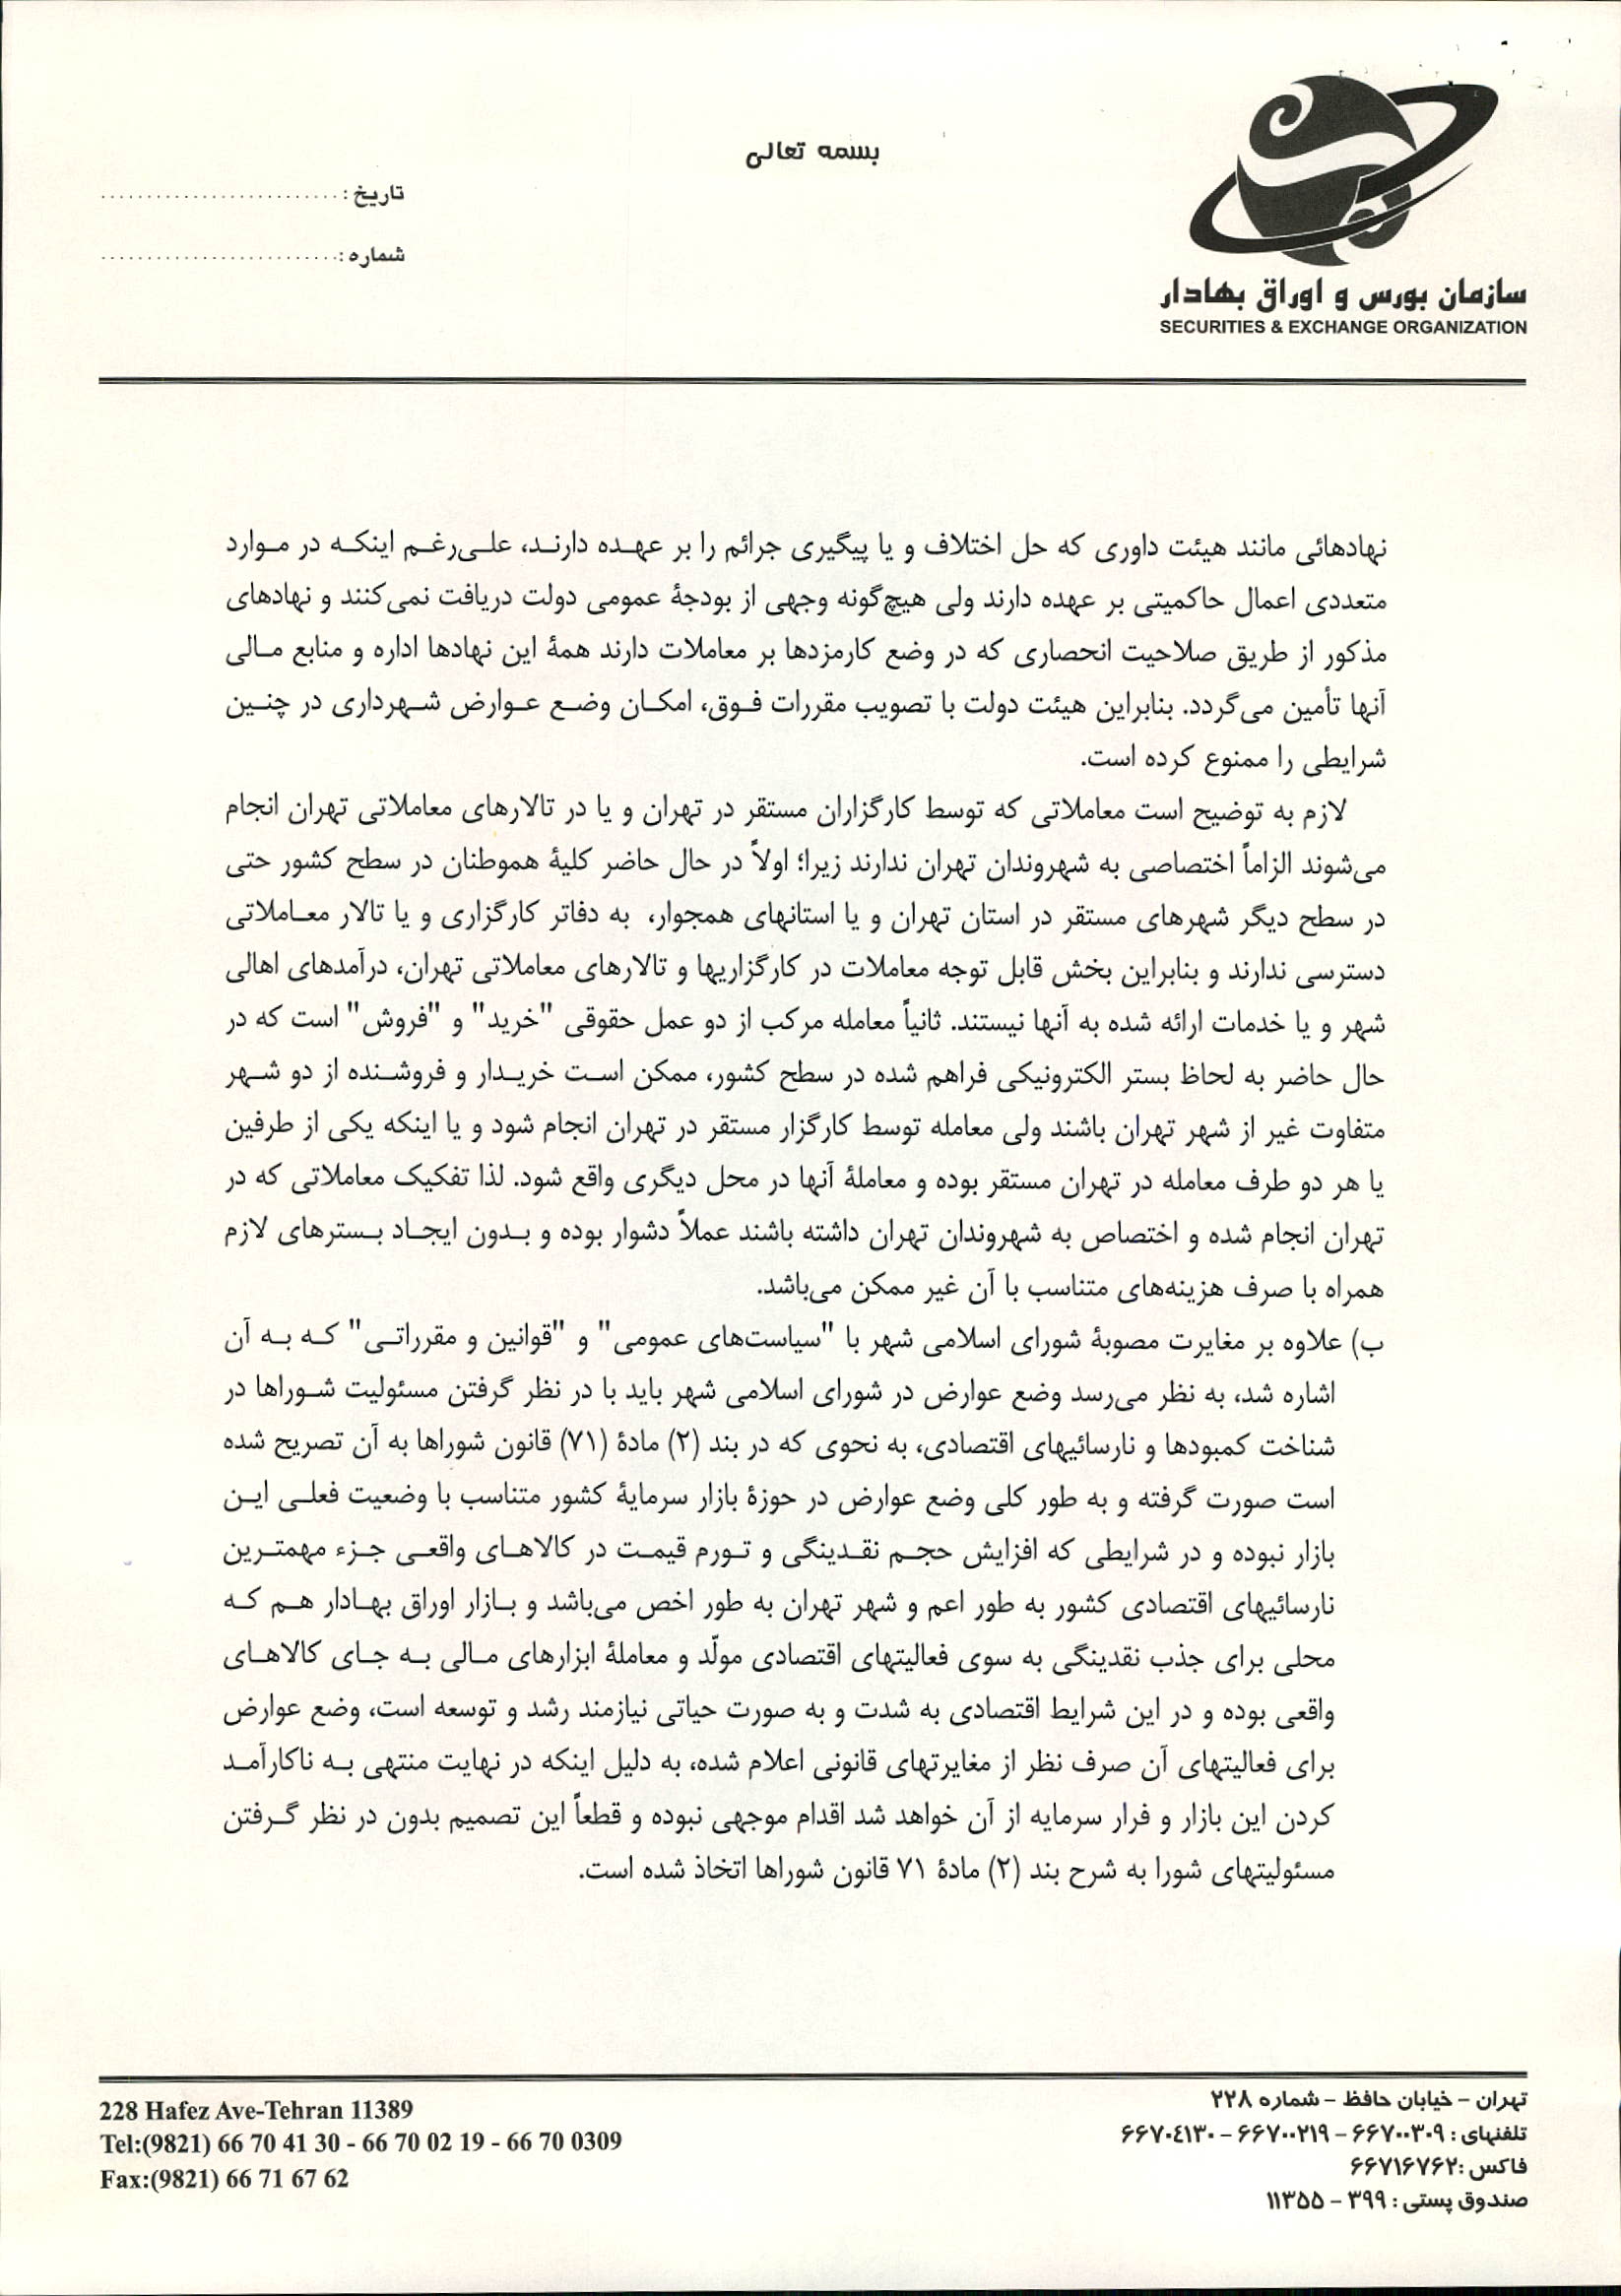 بسمه تعالی
تاریخ : ..........................
شماره : ..........................
سازمان بورس و اوراق بهادار
SECURITIES & EXCHANGE ORGANIZATION
نهادهائی مانند هیئت داوری که حل اختلاف و یا پیگیری جرائم را بر عهده دارند، علی‌رغم اینکه در موارد
متعددی اعمال حاکمیتی بر عهده دارند ولی هیچ‌گونه وجهی از بودجهٔ عمومی دولت دریافت نمی‌کنند و نهادهای
مذکور از طریق صلاحیت انحصاری که در وضع کارمزدها بر معاملات دارند همهٔ این نهادها اداره و منابع مالی
آنها تأمین می‌گردد. بنابراین هیئت دولت با تصویب مقررات فوق، امکان وضع عوارض شهرداری در چنین
شرایطی را ممنوع کرده است.
لازم به توضیح است معاملاتی که توسط کارگزاران مستقر در تهران و یا در تالارهای معاملاتی تهران انجام
می‌شوند الزاماً اختصاصی به شهروندان تهران ندارند زیرا؛ اولاً در حال حاضر کلیهٔ هموطنان در سطح کشور حتی
در سطح دیگر شهرهای مستقر در استان تهران و یا استانهای همجوار، به دفاتر کارگزاری و یا تالار معاملاتی
دسترسی ندارند و بنابراین بخش قابل توجه معاملات در کارگزاریها و تالارهای معاملاتی تهران، درآمدهای اهالی
شهر و یا خدمات ارائه شده به آنها نیستند. ثانیاً معامله مرکب از دو عمل حقوقی "خرید" و "فروش" است که در
حال حاضر به لحاظ بستر الکترونیکی فراهم شده در سطح کشور، ممکن است خریدار و فروشنده از دو شهر
متفاوت غیر از شهر تهران باشند ولی معامله توسط کارگزار مستقر در تهران انجام شود و یا اینکه یکی از طرفین
یا هر دو طرف معامله در تهران مستقر بوده و معاملهٔ آنها در محل دیگری واقع شود. لذا تفکیک معاملاتی که در
تهران انجام شده و اختصاص به شهروندان تهران داشته باشند عملاً دشوار بوده و بدون ایجاد بسترهای لازم
همراه با صرف هزینه‌های متناسب با آن غیر ممکن می‌باشد.
ب) علاوه بر مغایرت مصوبهٔ شورای اسلامی شهر با "سیاست‌های عمومی" و "قوانین و مقرراتی" که به آن
اشاره شد، به نظر می‌رسد وضع عوارض در شورای اسلامی شهر باید با در نظر گرفتن مسئولیت شوراها در
شناخت کمبودها و نارسائیهای اقتصادی، به نحوی که در بند (۲) مادهٔ (۷۱) قانون شوراها به آن تصریح شده
است صورت گرفته و به طور کلی وضع عوارض در حوزهٔ بازار سرمایهٔ کشور متناسب با وضعیت فعلی این
بازار نبوده و در شرایطی که افزایش حجم نقدینگی و تورم قیمت در کالاهای واقعی جزء مهمترین
نارسائیهای اقتصادی کشور به طور اعم و شهر تهران به طور اخص می‌باشد و بازار اوراق بهادار هم که
محلی برای جذب نقدینگی به سوی فعالیتهای اقتصادی مولّد و معاملهٔ ابزارهای مالی به جای کالاهای
واقعی بوده و در این شرایط اقتصادی به شدت و به صورت حیاتی نیازمند رشد و توسعه است، وضع عوارض
برای فعالیتهای آن صرف نظر از مغایرتهای قانونی اعلام شده، به دلیل اینکه در نهایت منتهی به ناکارآمد
کردن این بازار و فرار سرمایه از آن خواهد شد اقدام موجهی نبوده و قطعاً این تصمیم بدون در نظر گرفتن
مسئولیتهای شورا به شرح بند (۲) مادهٔ ۷۱ قانون شوراها اتخاذ شده است.
تهران - خیابان حافظ - شماره ۲۲۸
تلفنهای : ۶۶۷۰۰۳۰۹ - ۶۶۷۰۰۲۱۹ - ۶۶۷۰٤۱۳۰
فاکس :۶۶۷۱۶۷۶۲
صندوق پستی : ۳۹۹ - ۱۱۳۵۵
228 Hafez Ave-Tehran 11389
Tel:(9821) 66 70 41 30 - 66 70 02 19 - 66 70 0309
Fax:(9821) 66 71 67 62